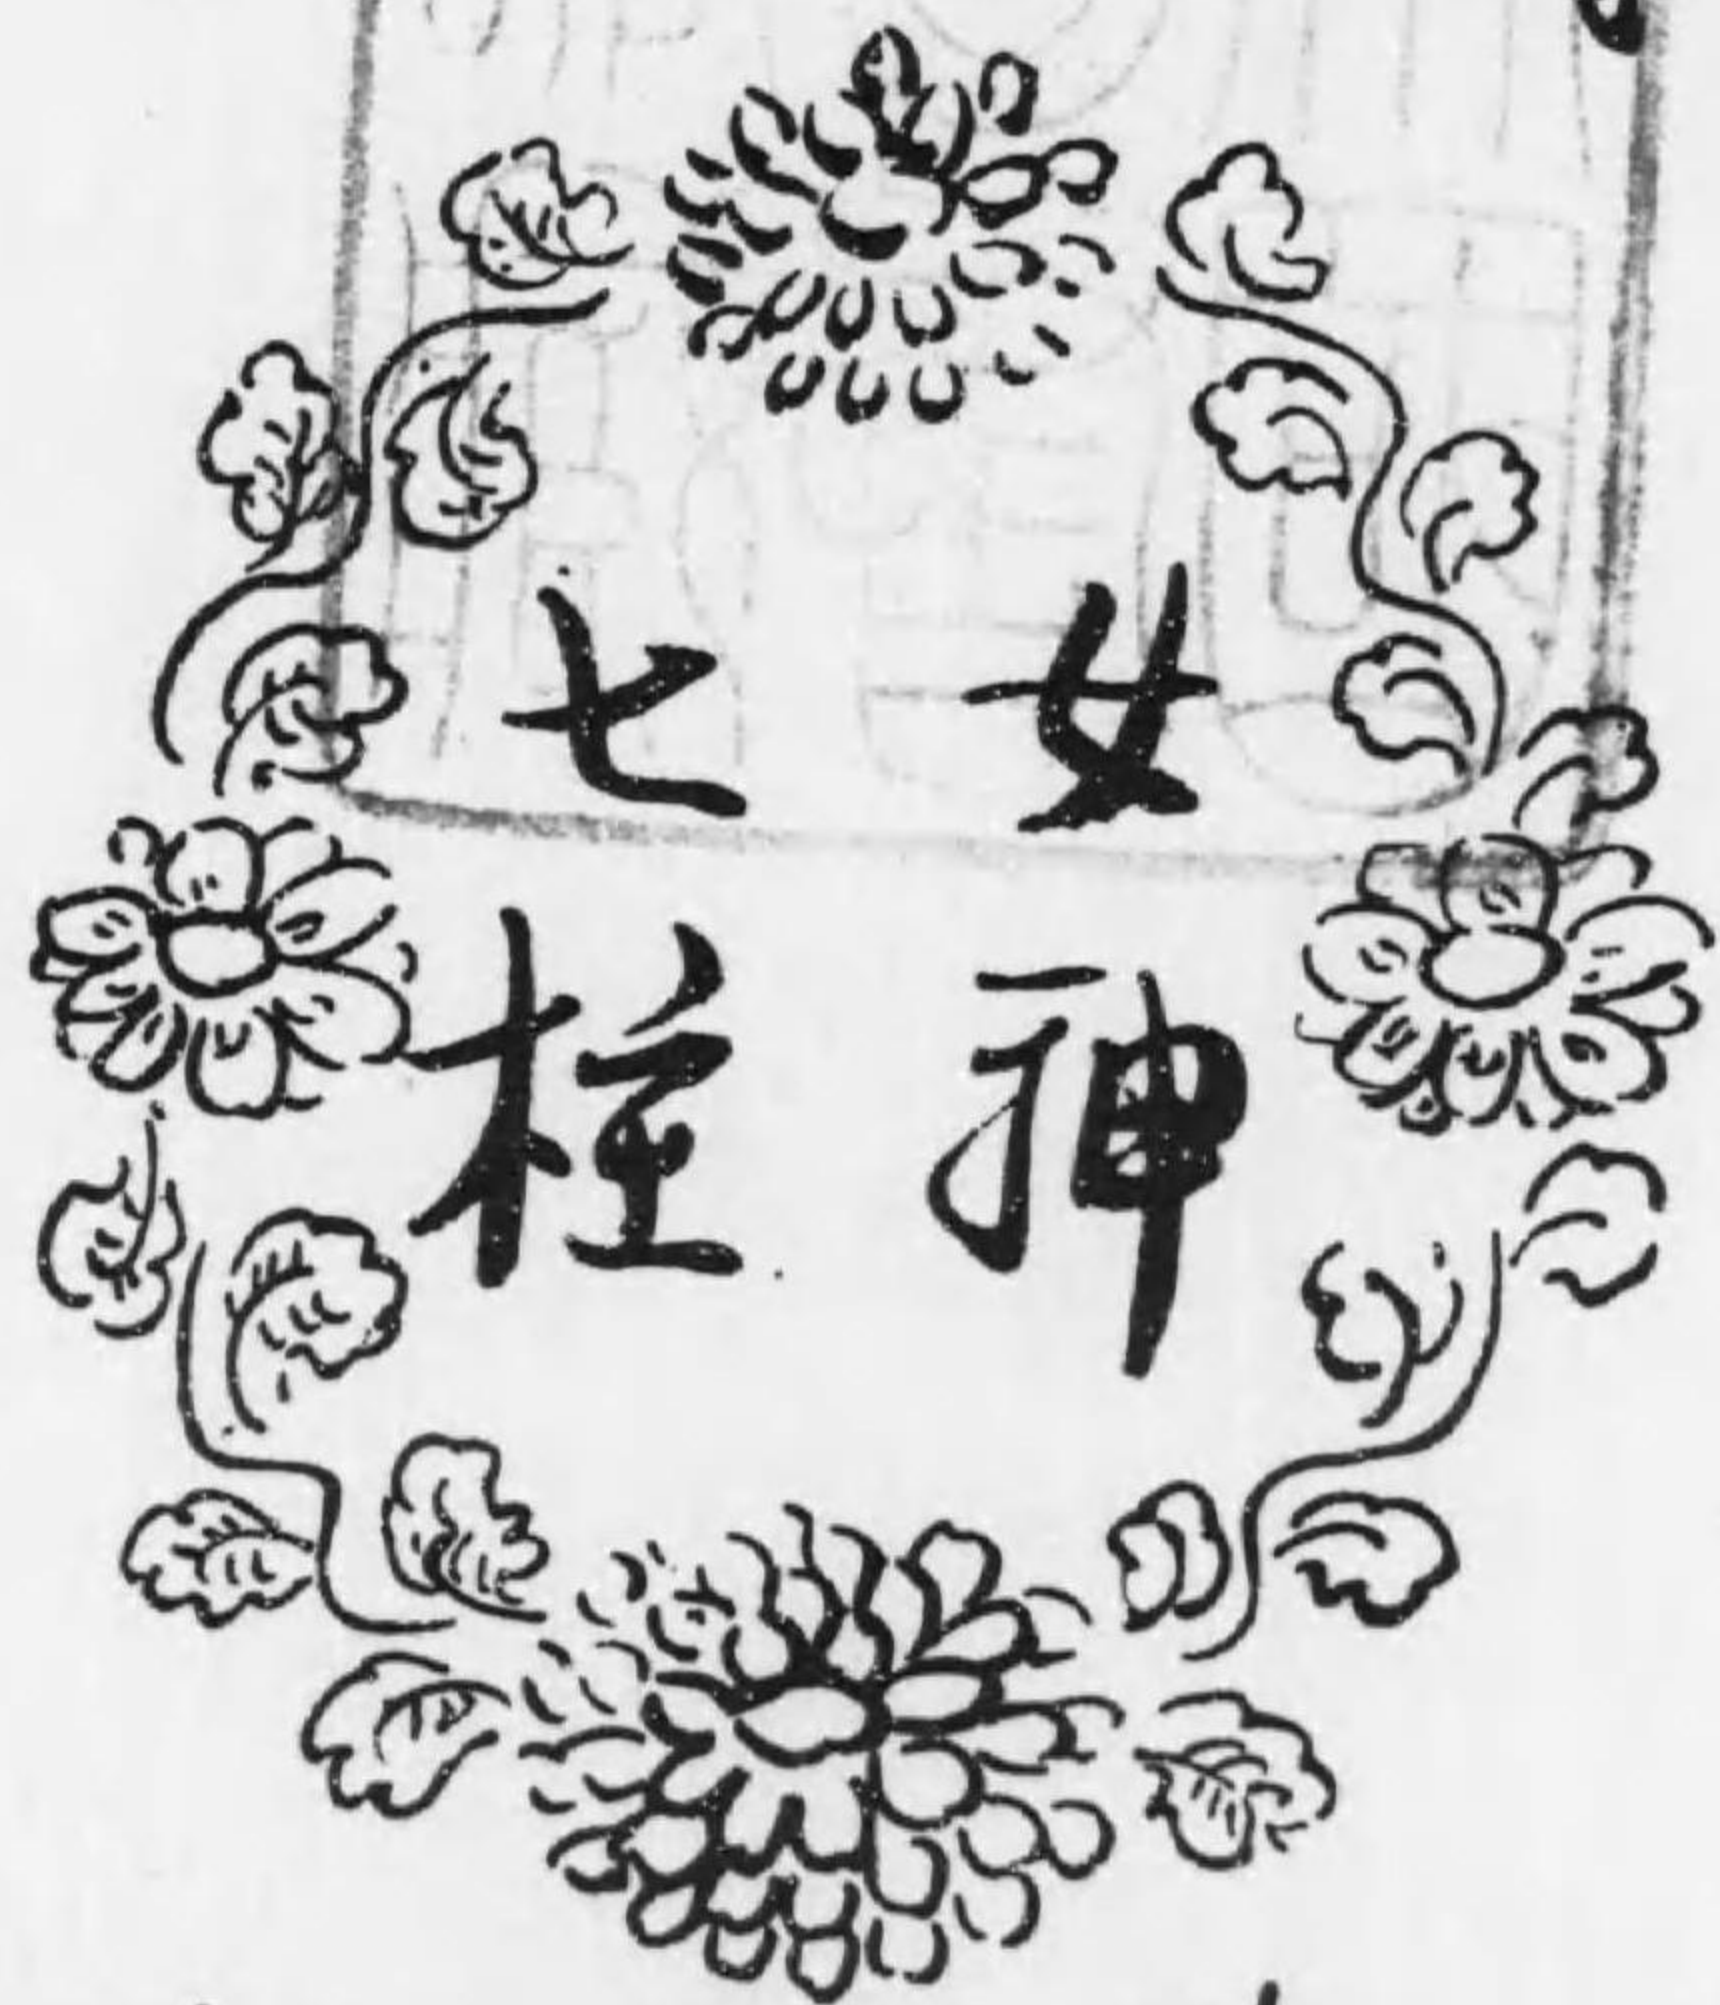 女神
七柱